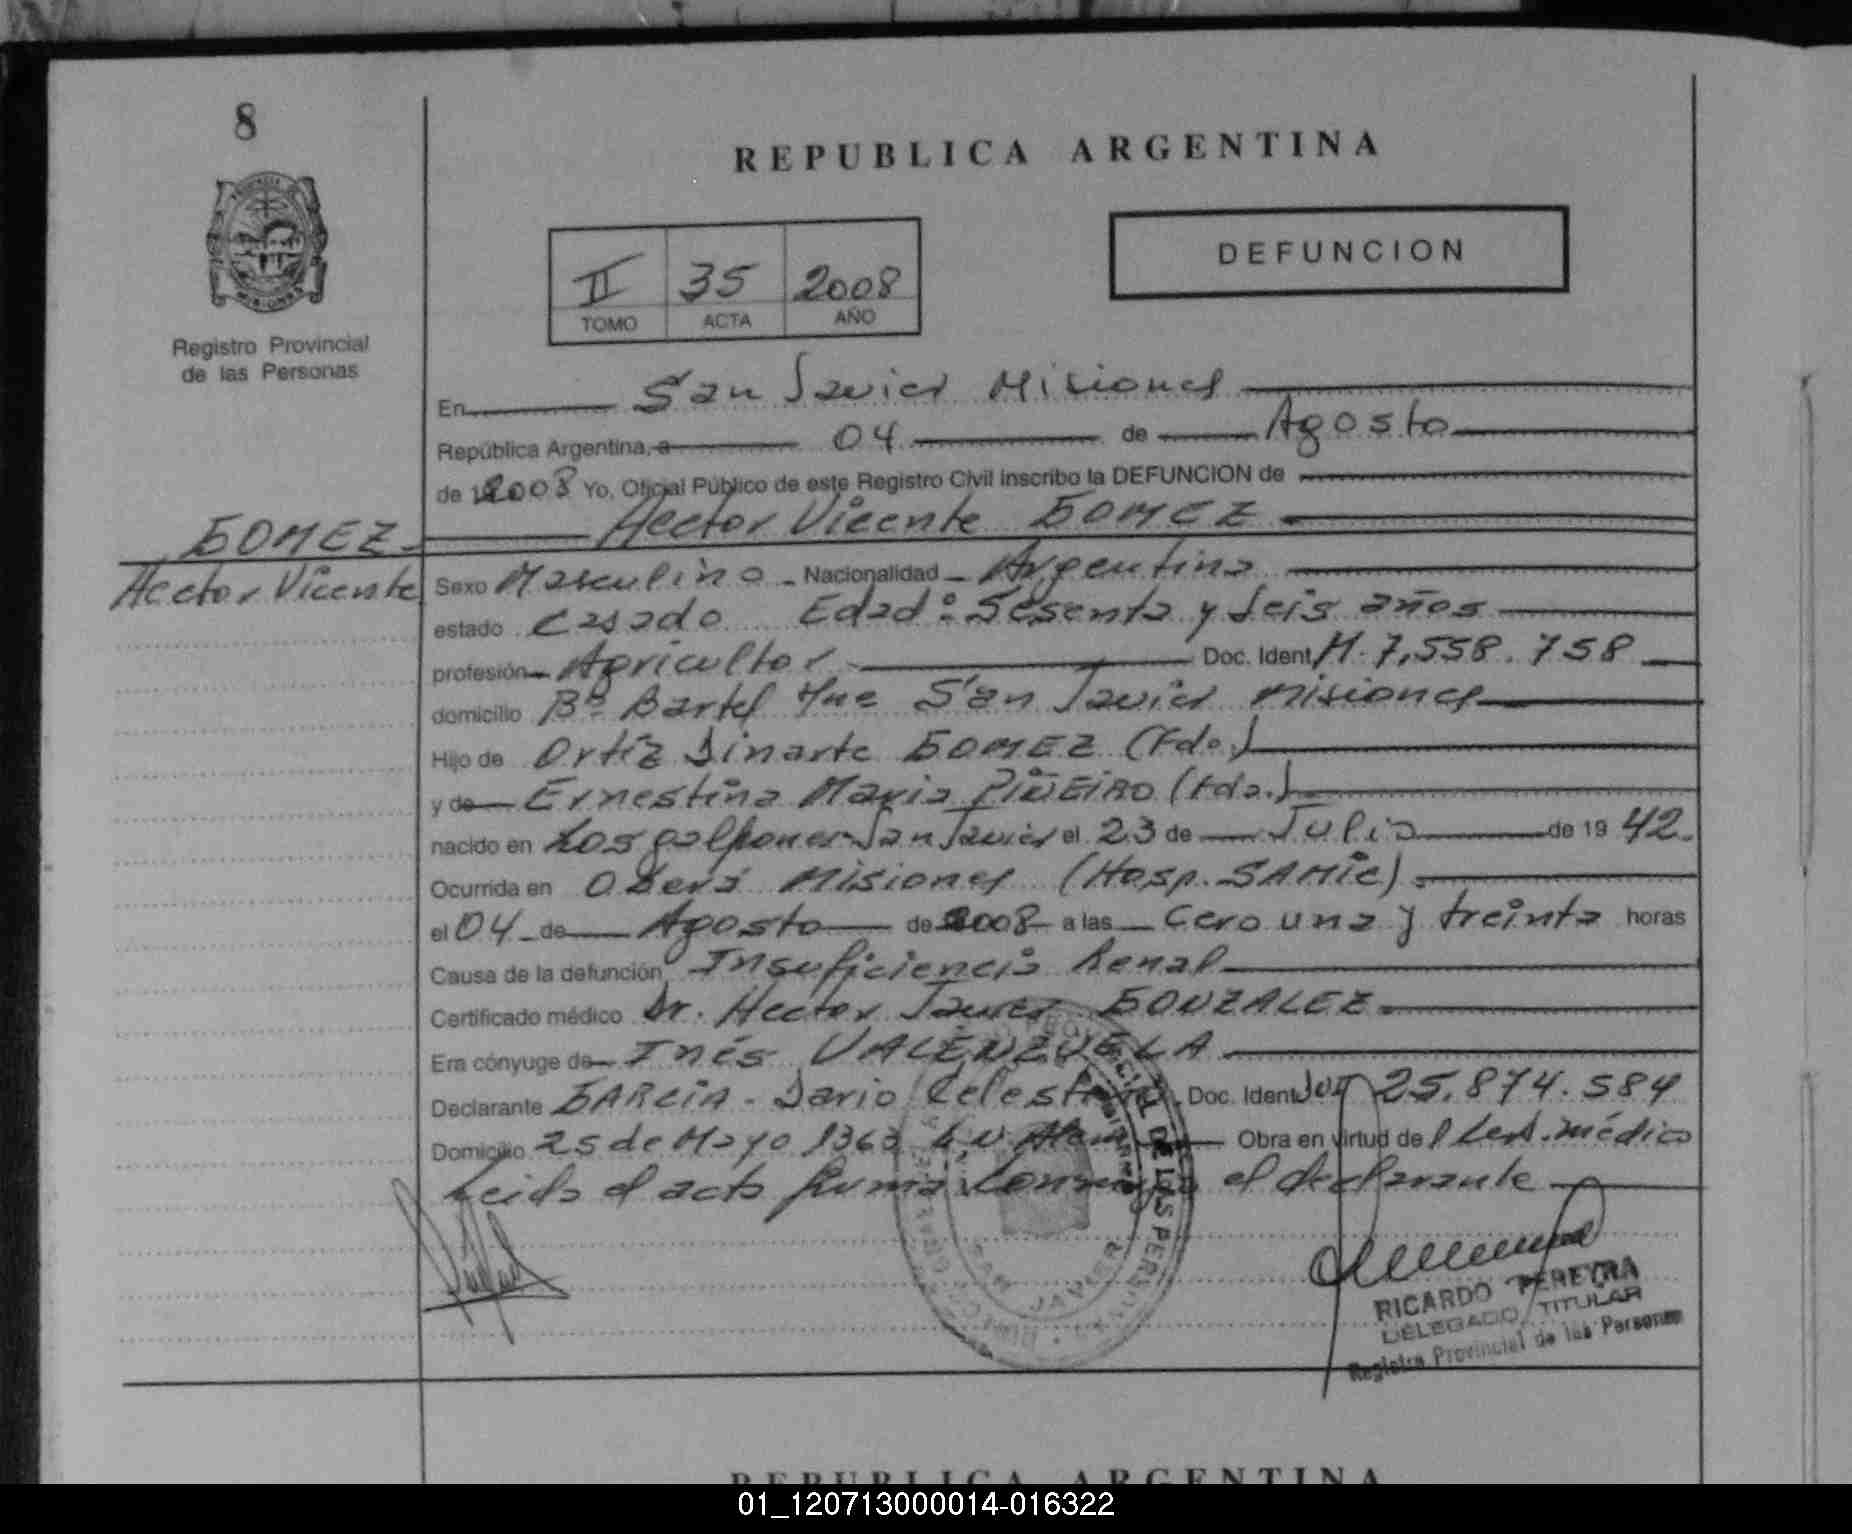 8
REPUBLICA ARGENTINA
DEFUNCION
II 35 2008
TOMO ACTA AÑO
Registro Provincial
de las Personas
En San Javier Misiones
República Argentina, a 04 de Agosto
de 2008 Yo, Oficial Público de este Registro Civil inscribo la DEFUNCION de
GOMEZ Hector Vicente GOMEZ
Hector Vicente
Sexo Masculino - Nacionalidad - Argentina
estado Casado Edad: Sesenta y seis años
profesión Agricultor Doc. Ident. M. 7,558.758
domicilio Bº Bartel San Javier Misiones
Hijo de Ortiz Dinarte GOMEZ (Fdo.)
y de Ernestina Maria PIÑEIRO (Fda.)
nacido en Los galpones San Javier el 23 de Julio de 19 42.
Ocurrida en Oberá Misiones (Hosp. SAMIC)
el 04 de Agosto de 2008 a las Cero una y treinta horas
Causa de la defunción Insuficiencia Renal
Certificado médico Dr. Hector Javier GONZALEZ
Era cónyuge de Inés VALENZUELA
Declarante GARCIA - Dario Celestino. Doc. Ident. DNI 25.874.584
Domicilio 25 de Mayo 1363 L.N Alem Obra en virtud de Cert. médico
Leida el acta firma conmigo el declarante
SAN JAVIER
RICARDO PEREYRA
DELEGADO TITULAR
Registro Provincial de las Personas
REPUBLICA ARGENTINA
01_120713000014-016322